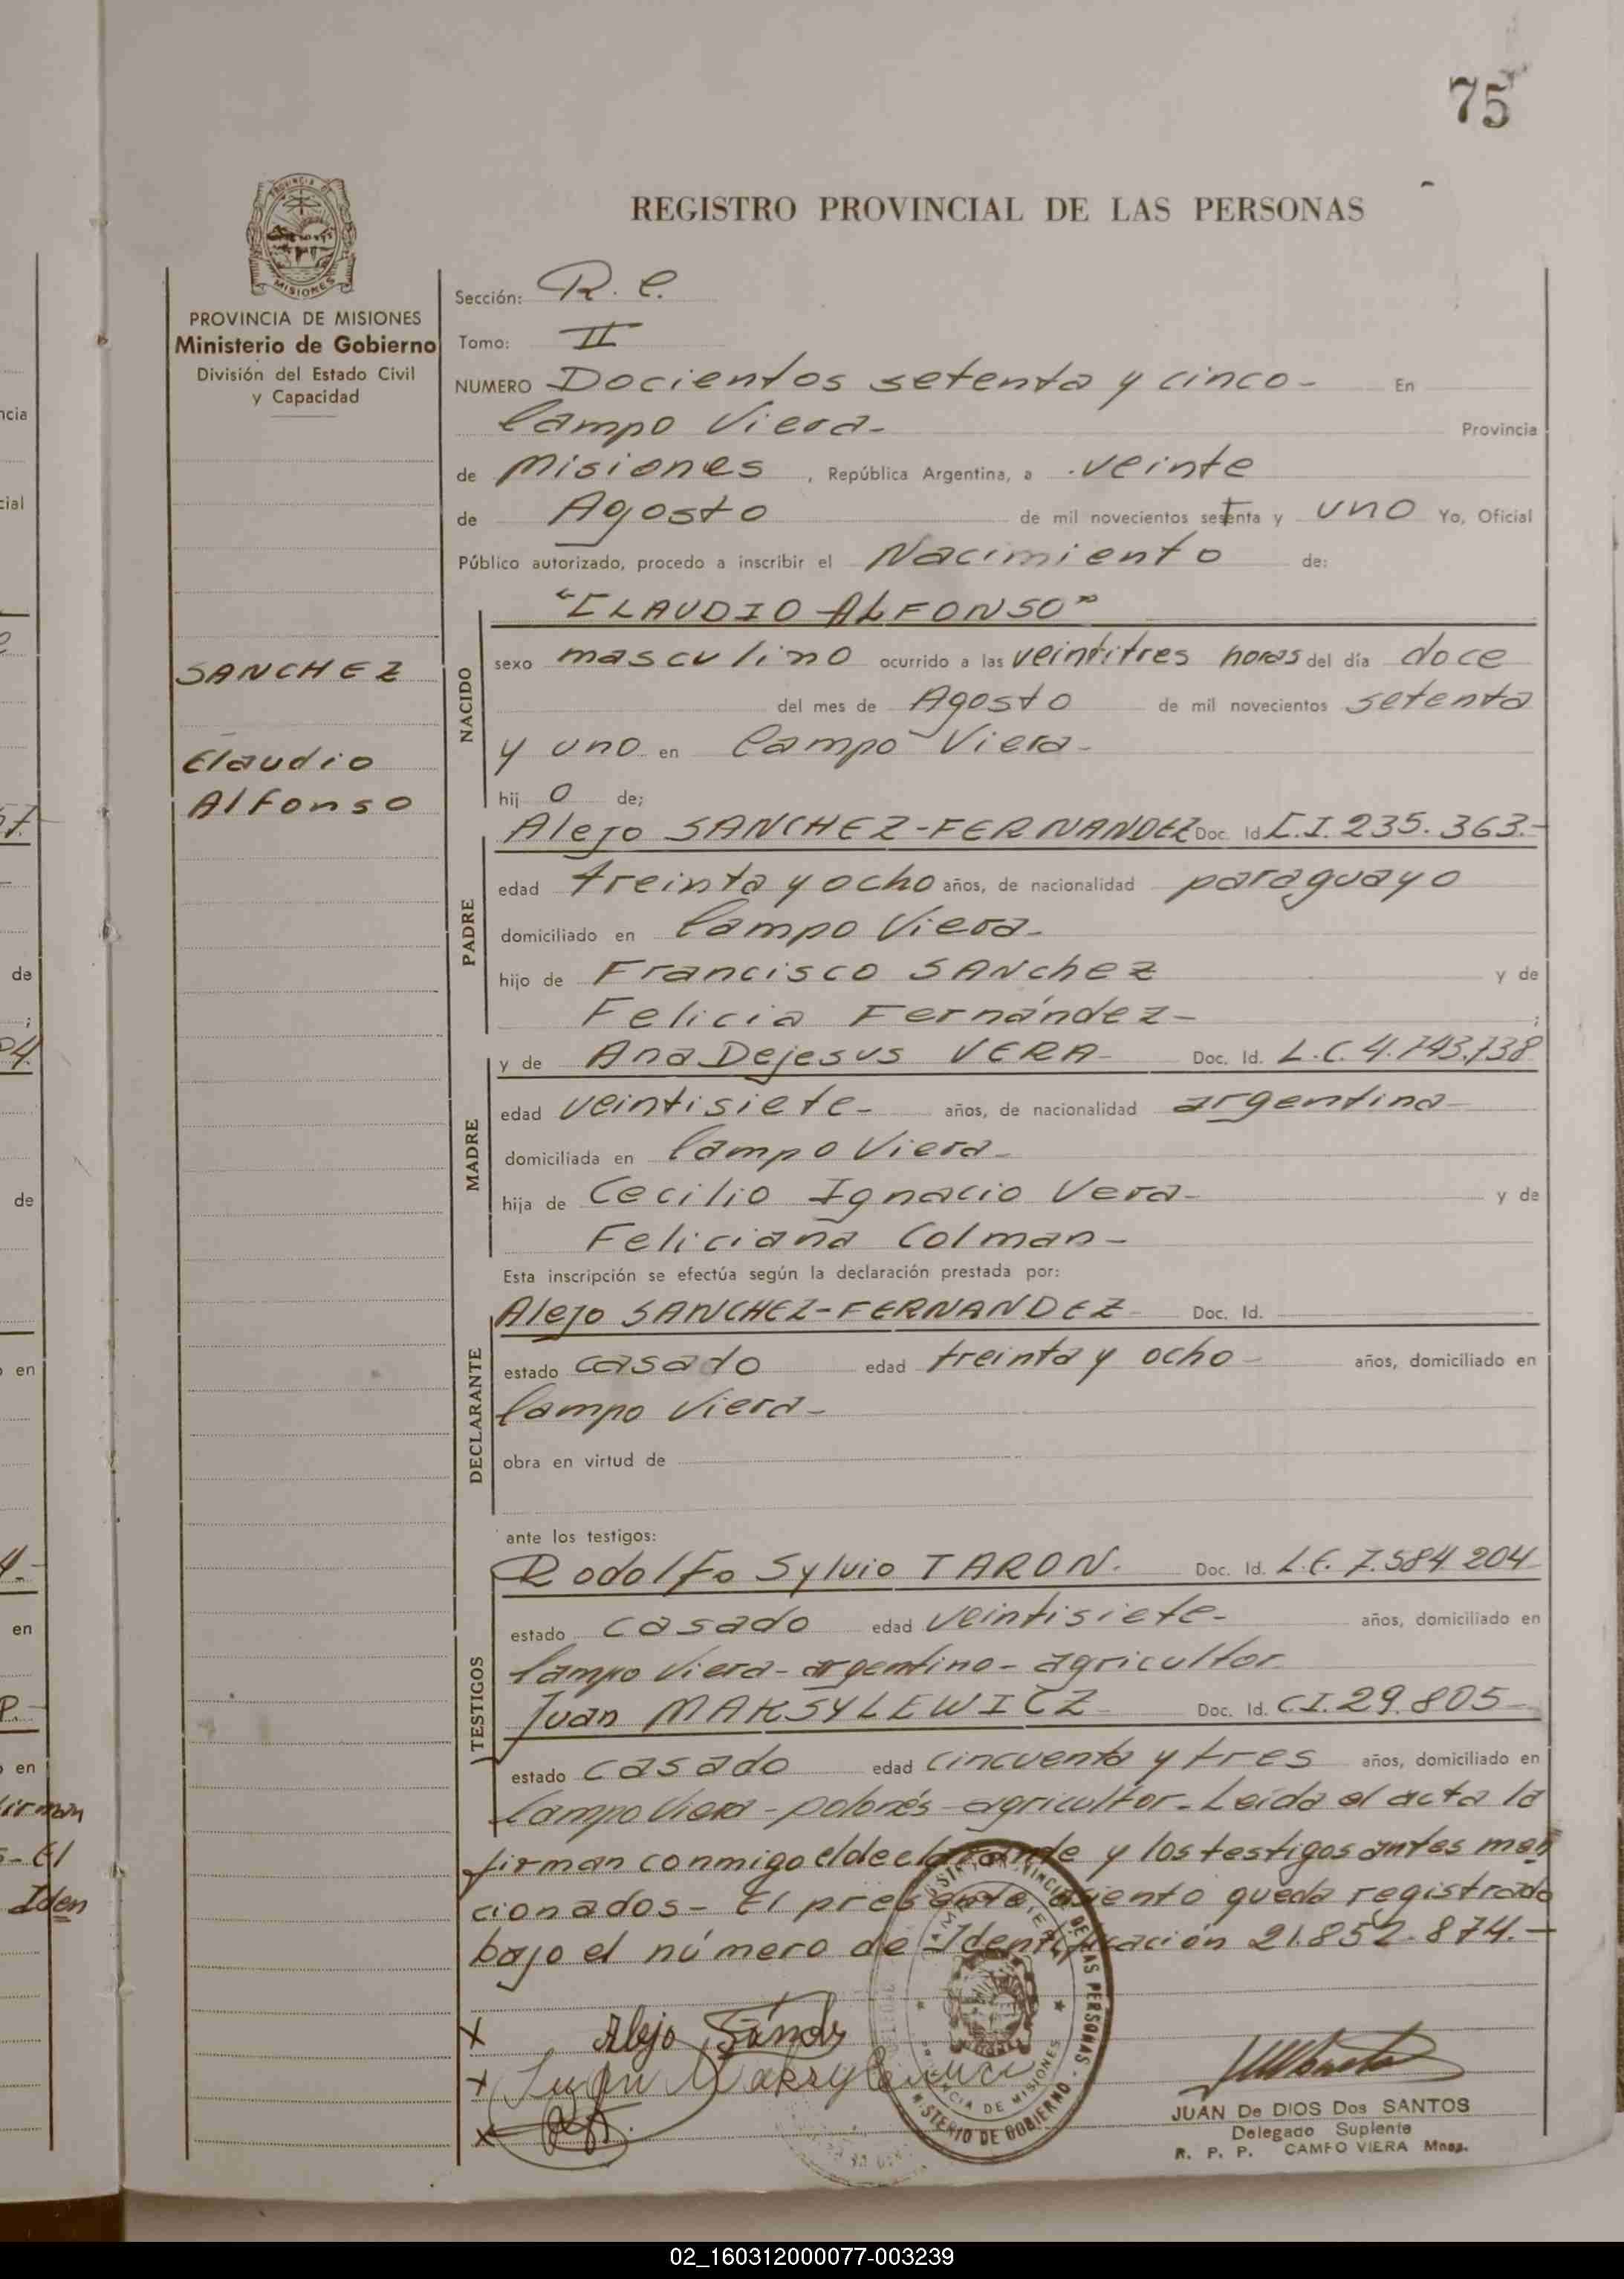 75
REGISTRO PROVINCIAL DE LAS PERSONAS
PROVINCIA DE
MISIONES
PROVINCIA DE MISIONES
Ministerio de Gobierno
División del Estado Civil
y Capacidad
Sección: R. C.
Tomo: II
NUMERO Docientos setenta y cinco- En
Campo Viera- Provincia
de Misiones, República Argentina, a veinte
de Agosto de mil novecientos setenta y uno Yo, Oficial
Público autorizado, procedo a inscribir el Nacimiento de:
"CLAUDIO ALFONSO"
SANCHEZ
Claudio
Alfonso
NACIDO
sexo masculino ocurrido a las veintitres horas del día doce
del mes de Agosto de mil novecientos setenta
y uno en Campo Viera-
hij o de;
PADRE
Alejo SANCHEZ-FERNANDEZ Doc. Id. C.I. 235.363.-
edad treinta y ocho años, de nacionalidad paraguayo
domiciliado en Campo Viera-
hijo de Francisco SANchez y de
Felicia Fernández- ;
MADRE
y de Ana Dejesus VERA- Doc. Id. L.C. 4.743.738
edad veintisiete- años, de nacionalidad argentina-
domiciliada en Campo Viera-
hija de Cecilio Ignacio Vera- y de
Feliciana Colman-
Esta inscripción se efectúa según la declaración prestada por:
DECLARANTE
Alejo SANCHEZ-FERNANDEZ- Doc. Id.
estado casado edad treinta y ocho- años, domiciliado en
Campo Viera-
obra en virtud de
ante los testigos:
TESTIGOS
Rodolfo Sylvio TARON. Doc. Id. L.E. 7.584.204
estado casado edad veintisiete- años, domiciliado en
Campo Viera- argentino- agricultor
Juan MAKSYLEWICZ- Doc. Id. C.I. 29.805-
estado casado edad cincuenta y tres años, domiciliado en
Campo Viera- polonés- agricultor- Leída el acta la
firman conmigo el declarante y los testigos antes men
cionados- El presente asiento queda registrado
bajo el número de Identificación 21.852.874.-
x Alejo Sánch
x Juan
x
PROVINCIA DE MISIONES
DE LAS PERSONAS
MINISTERIO DE GOBIERNO
JUAN De DIOS Dos SANTOS
Delegado Suplente
R. P. P. CAMPO VIERA Mnes.
ncia
cial
de
de
en
en
en
firman
- El
Iden
02_160312000077-003239